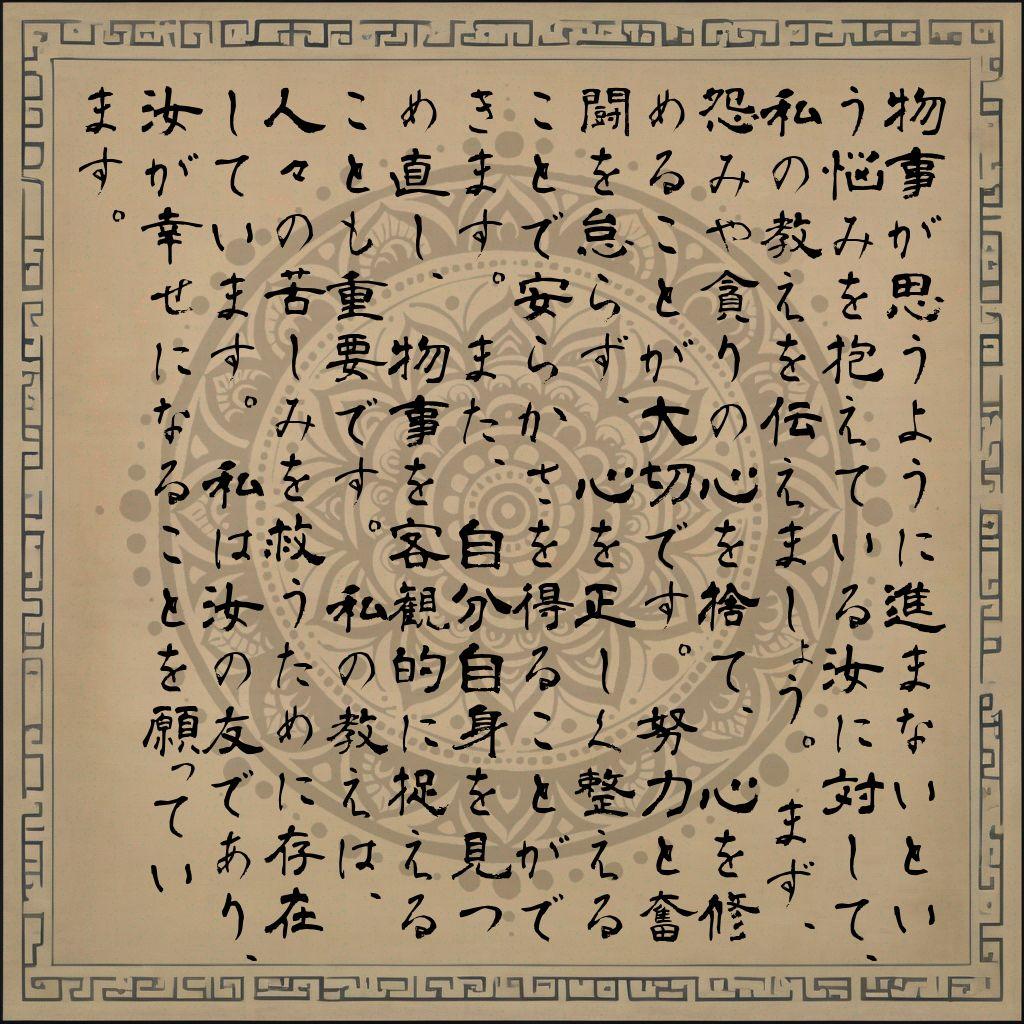 物事が思うように進まないとい
う悩みを抱えている汝に対して、
私の教えを伝えましょう。まず、
怨みや貪りの心を捨て、心を修
めることが大切です。努力と奮
闘を怠らず、心を正しく整える
ことで安らかさを得ることがで
きます。また、自分自身を見つ
め直し、物事を客観的に捉える
ことも重要です。私の教えは、
人々の苦しみを救うために存在
しています。私は汝の友であり、
汝が幸せになることを願ってい
ます。